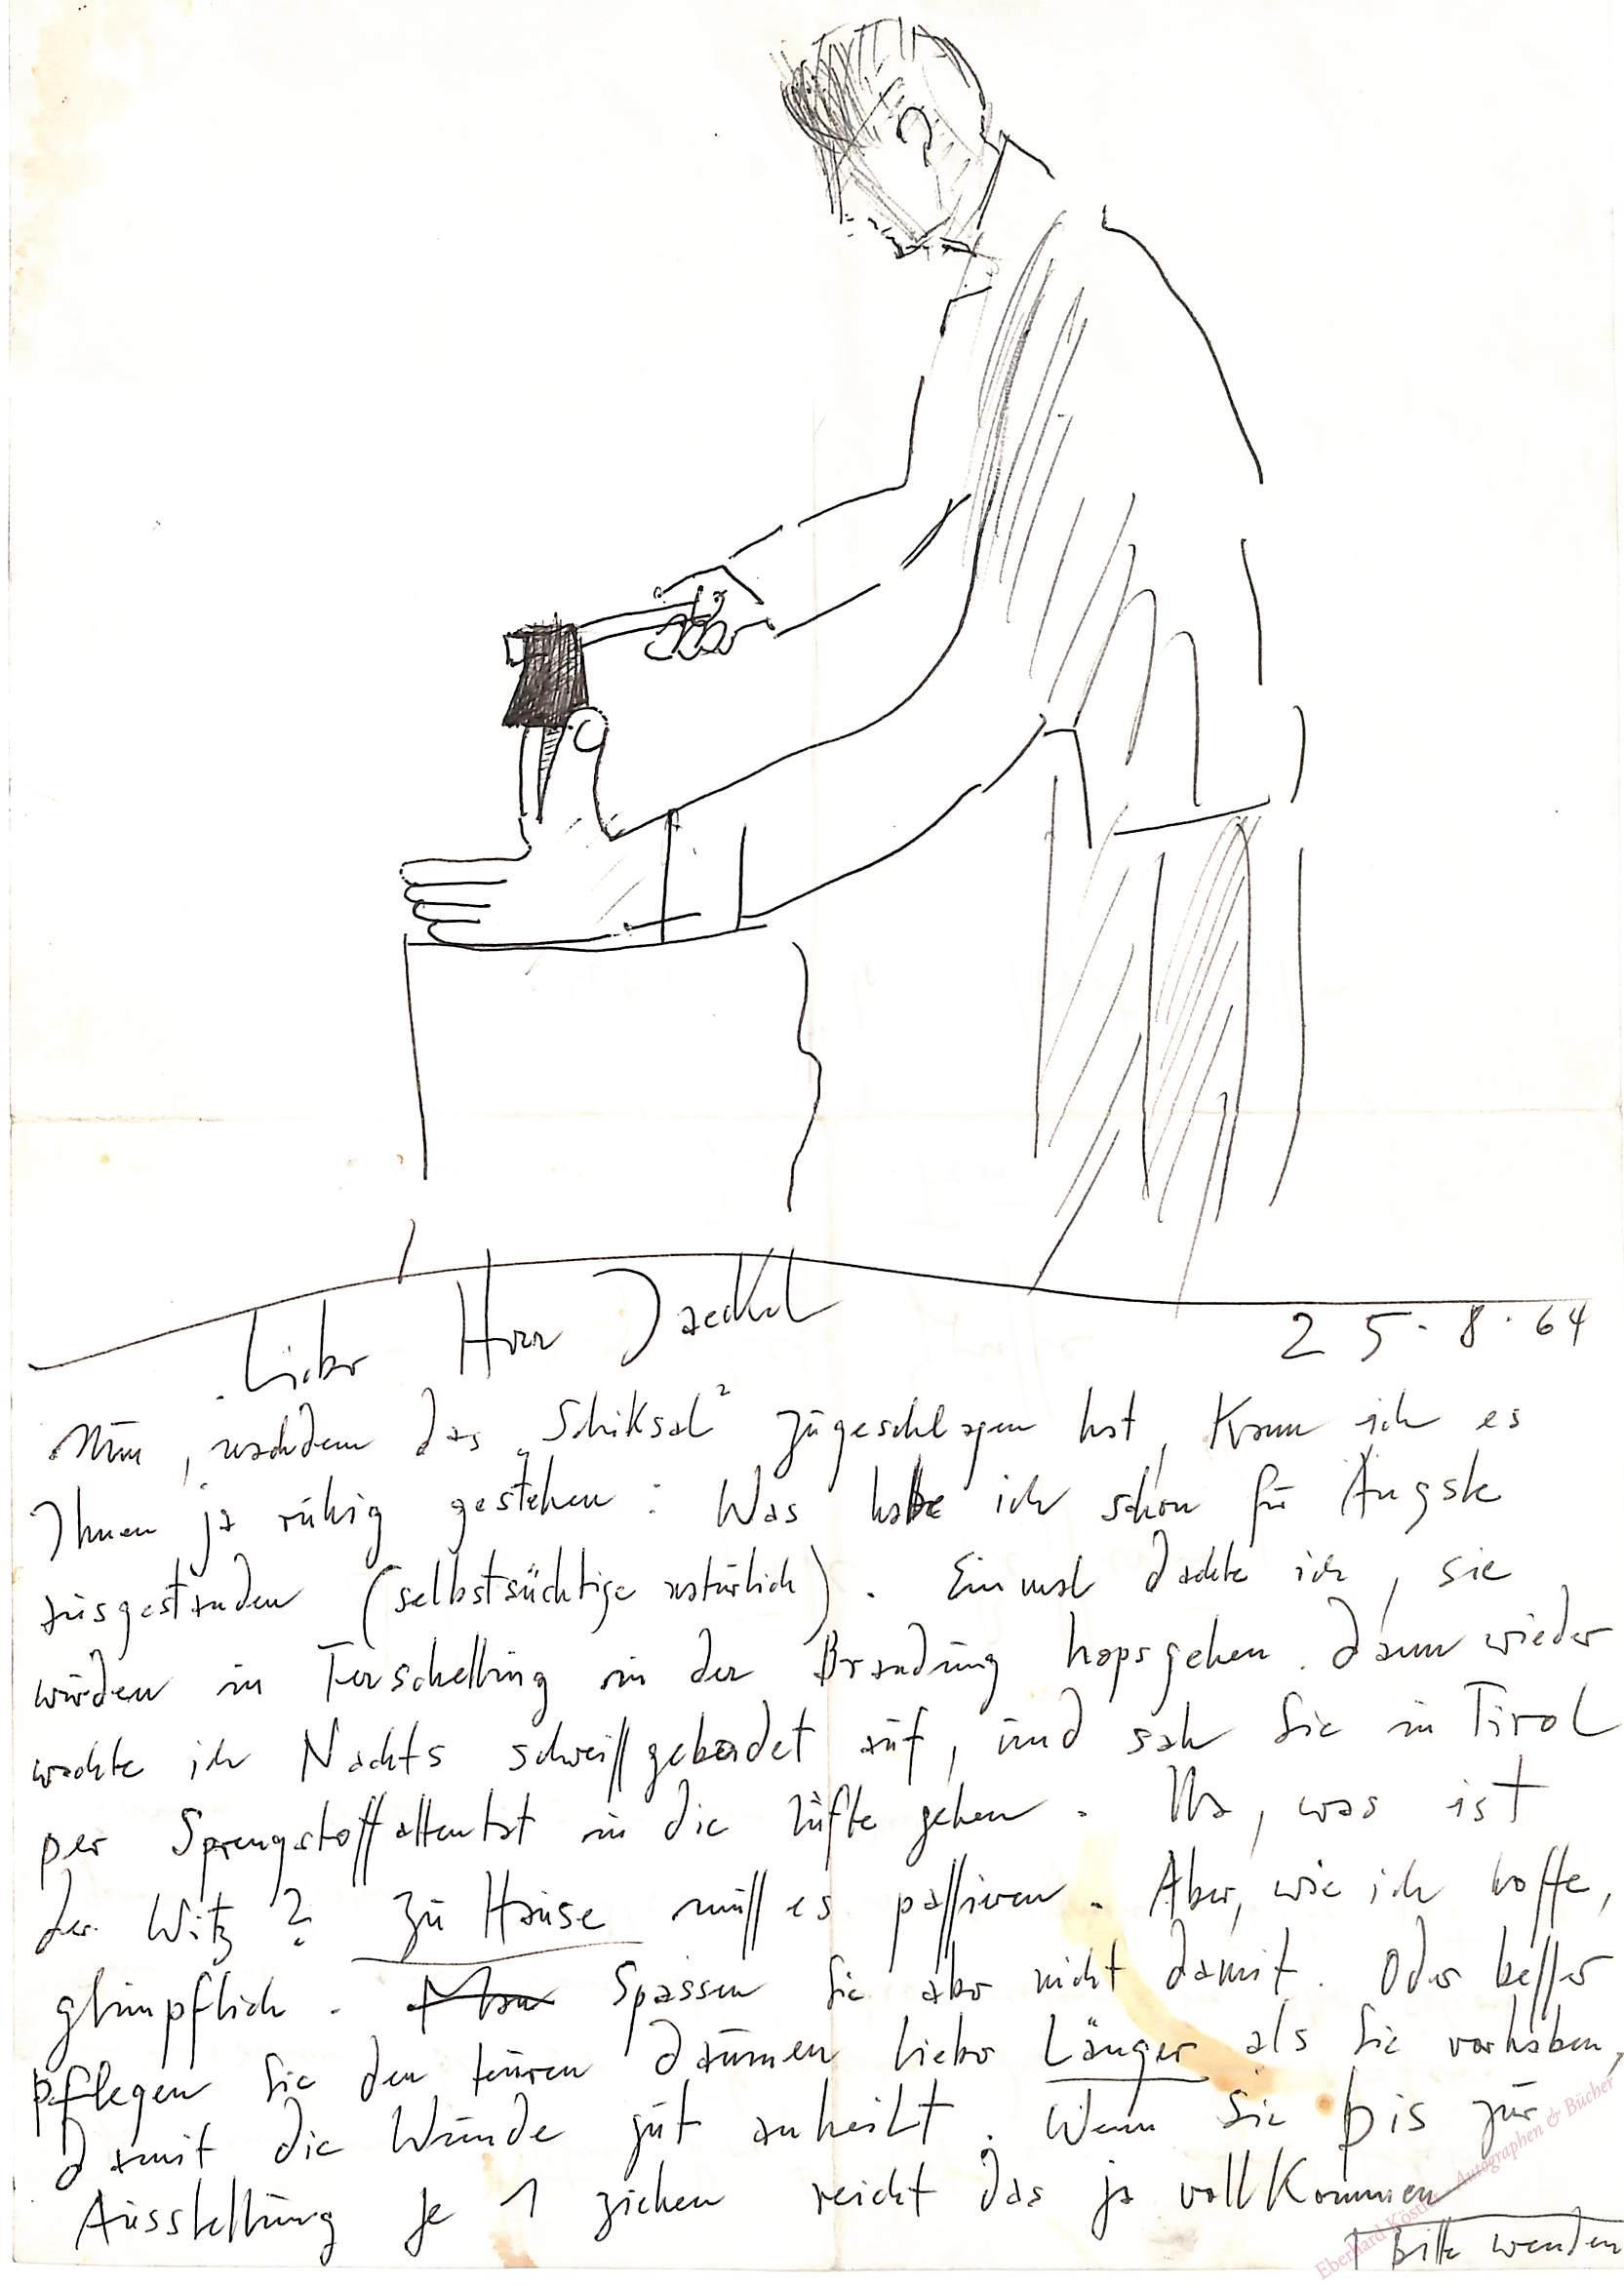 Lieber Herr Jaeckel
25.8.64
Nun, nachdem das „Schiksal" zugeschlagen hat, kann ich es
Ihnen ja ruhig gestehen: Was habe ich schon für Ängste
ausgestanden (selbstsüchtige natürlich). Einmal dachte ich, sie
würden in Terschelling in der Brandung hopsgehen. Dann wieder
wachte ich Nachts schweißgebadet auf, und sah Sie in Tirol
per Sprengstoffattentat in die Lüfte gehen. Na, was ist
der Witz? Zu Hause muß es paßieren. Aber, wie ich hoffe,
glimpflich. Man Spassen Sie aber nicht damit. Oder beßer
pflegen Sie den teuren Daumen lieber Länger als Sie vorhaben,
damit die Wunde gut anheilt. Wenn Sie bis zur
Ausstellung je 1 ziehen reicht das ja vollkommen
Bitte wenden
Eberhard Köstler Autographen & Bücher